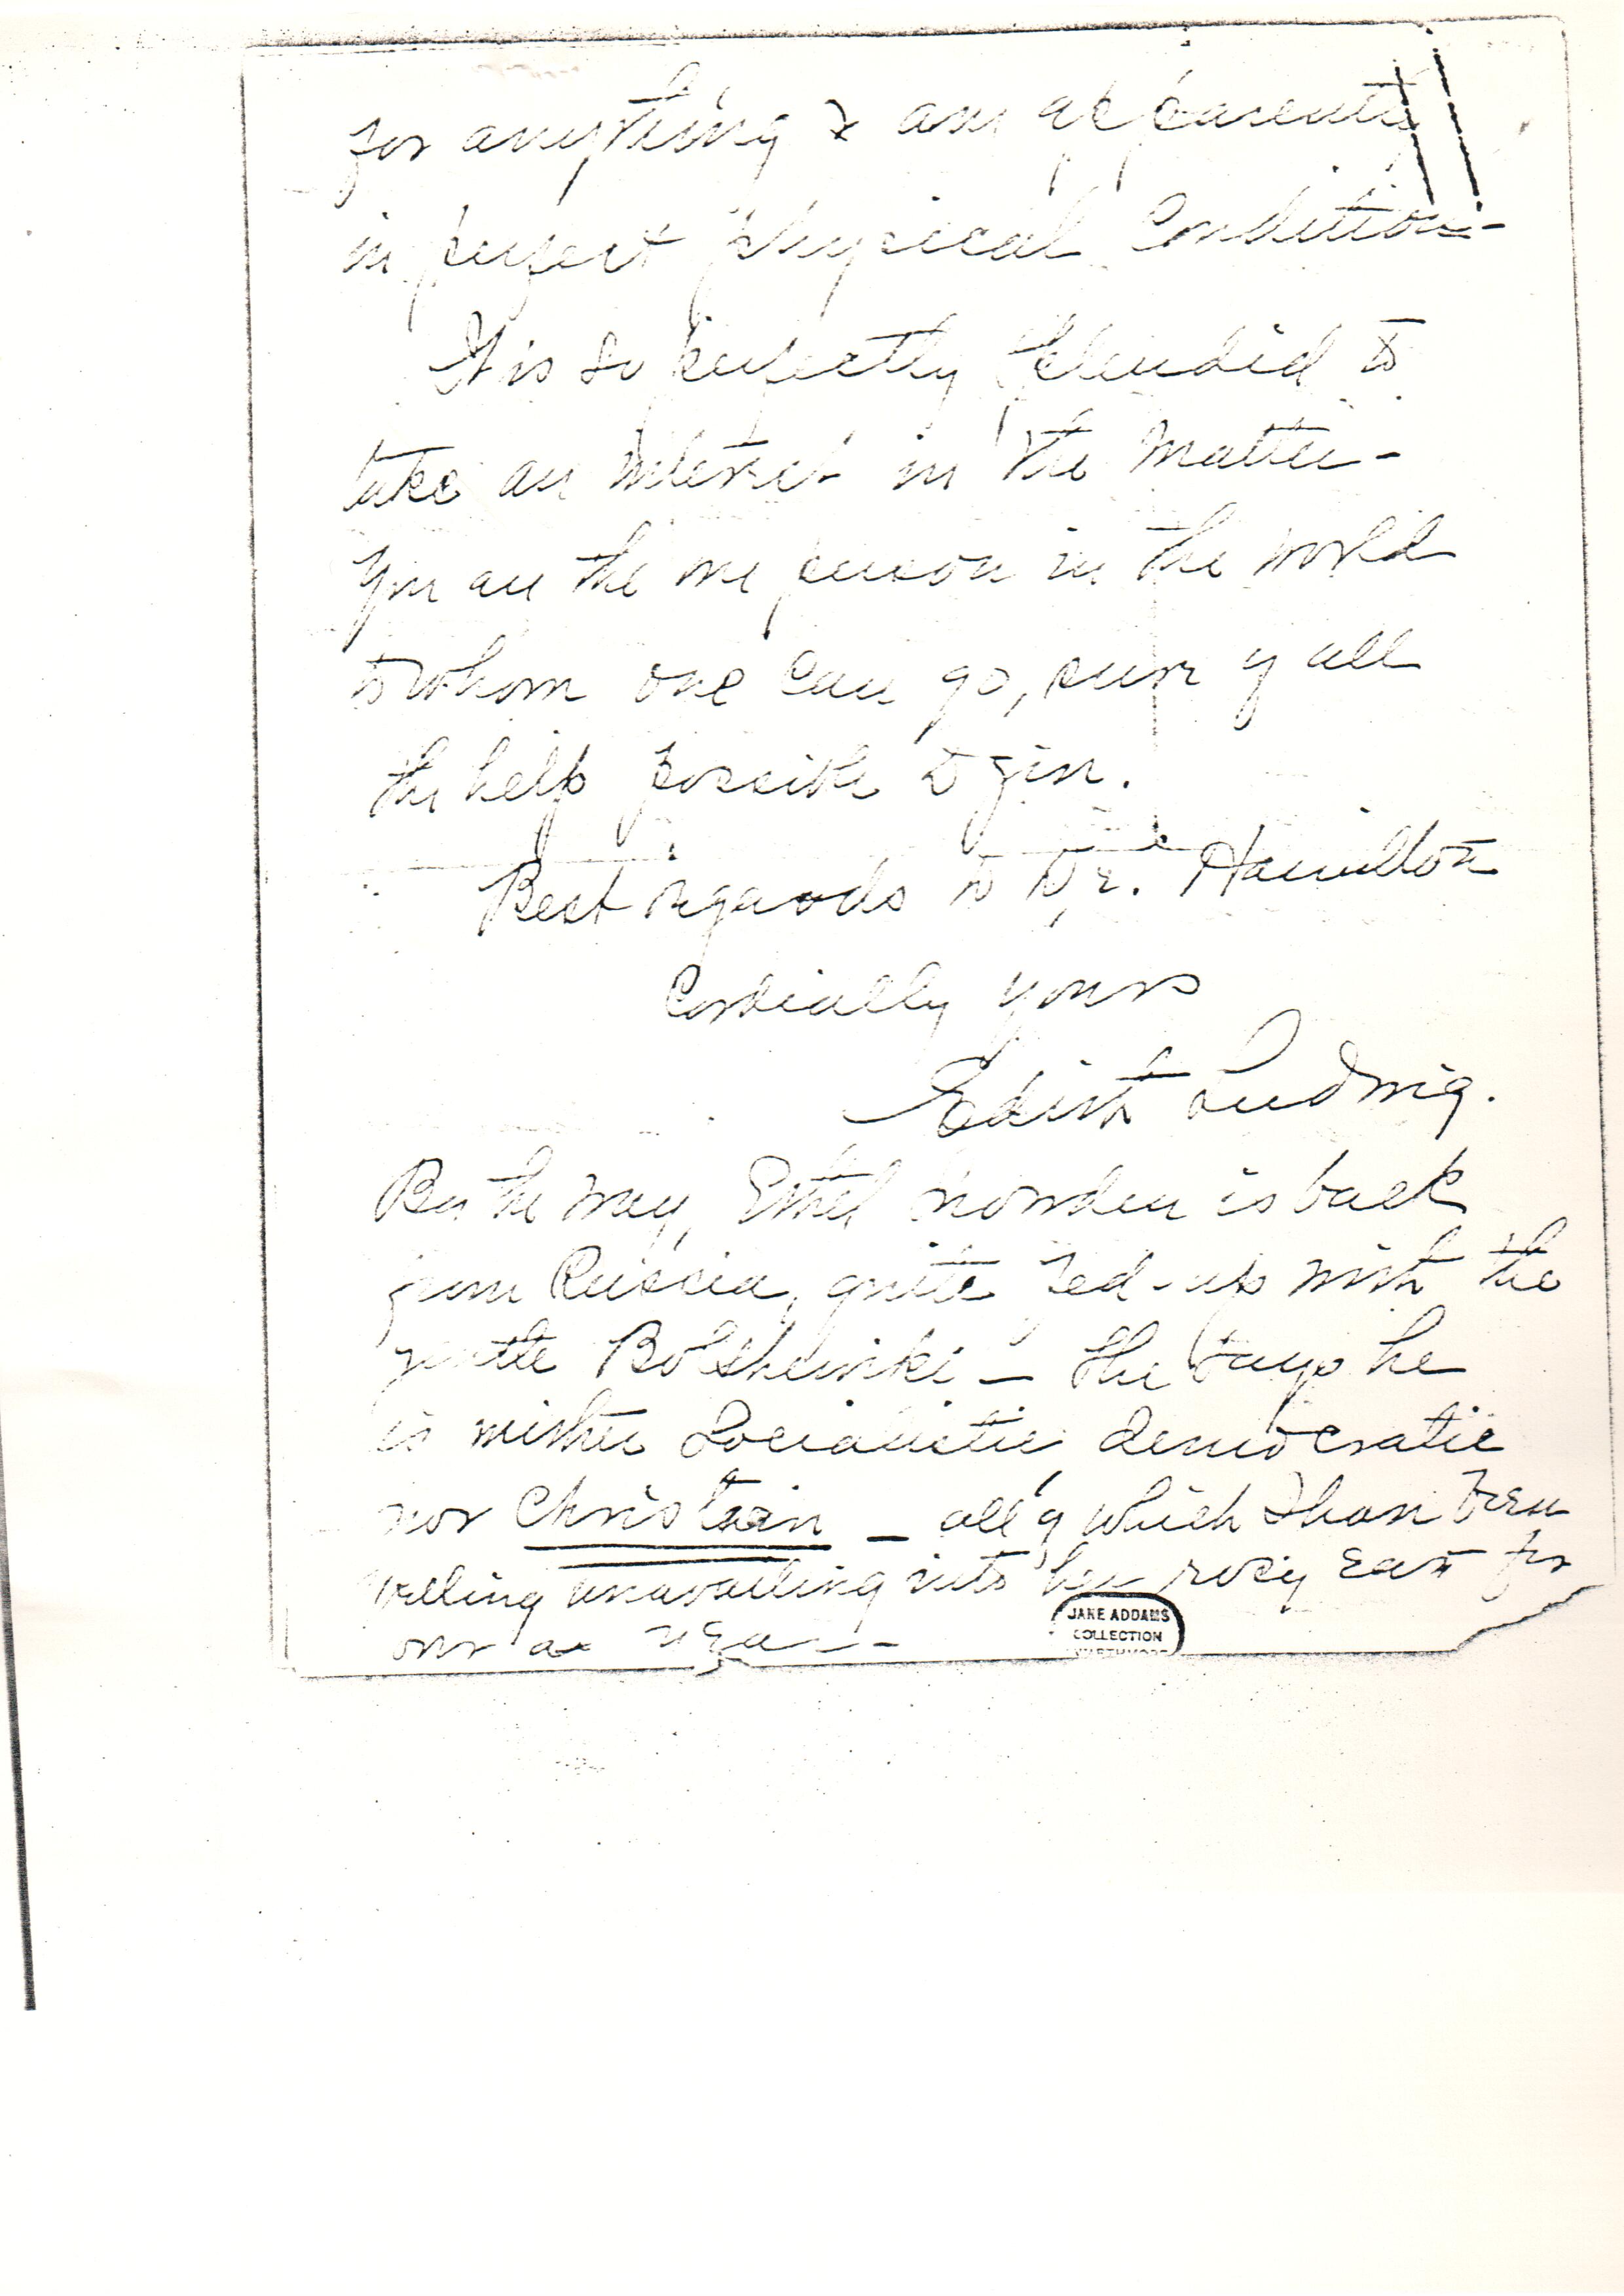 for anything & am apparently
in perfect physical condition -
It is so perfectly splendid to
take an interest in the matter -
You are the one person in the world
to whom one can go, sure of all
the help possible to give.
Best regards to Dr. Hamilton
Cordially yours
Edith Ludwig.
By the way, Ethel is back
from Russia, quite fed-up with the
gentle Bolsheviki - she says he
is neither Socialistic, democratic
nor Christian - all of which I have been
yelling unavailing into her rosy ears for
over a year -
JANE ADDAMS
COLLECTION